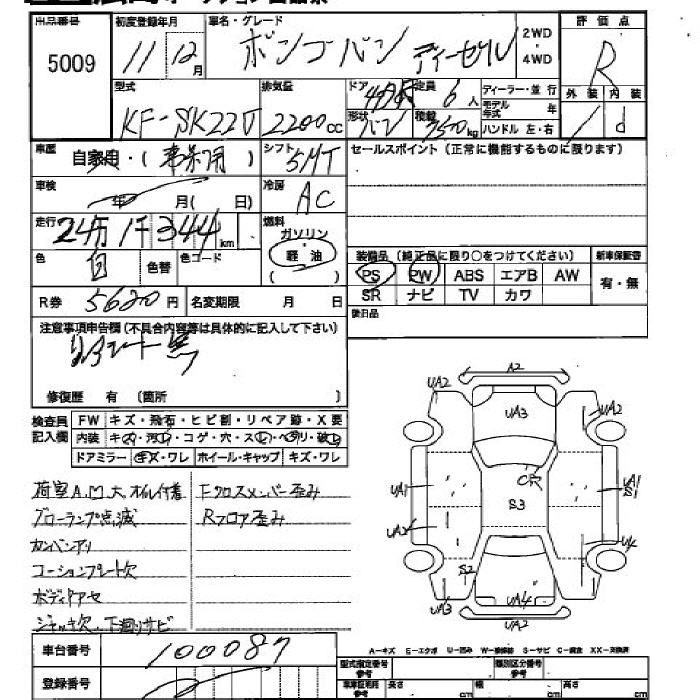 出品番号 初度登録年月 車名・グレード 2WD・4WD 評価点
5009 11 12月 ボンゴバン ディーゼル R
型式 排気量 ドア 定員 6人 ディーラー・並行 外装 内装
KF-SK22V 2200cc 形状 バン 積載 kg モデル年式 年 ハンドル 左・右 d
車歴 自家用・( ) シフト 5MT セールスポイント(正常に機能するものに限ります)
車検 年 月( 日) 冷房 AC
走行 24万1千344km 燃料 ガソリン 軽油 ( )
色 白 色替 色コード
装備品(純正品に限り○をつけてください) 新車保証書
PS PW ABS エアB AW 有・無
SR ナビ TV カワ
R券 5620円 名変期限 月 日
後日品
注意事項申告欄(不具合内容等は具体的に記入して下さい)
修復歴 有 (箇所 )
検査員記入欄 FW キズ・飛石・ヒビ割・リペア跡・X要
内装 キズ・汚れ・コゲ・穴・スレ・ヘタリ・破れ
ドアミラー キズ・ワレ ホイール・キャップ キズ・ワレ
荷室A,凹大 オイル付着 Fクロスメンバー歪み
グローランプ点滅 Rフロア歪み
カンバンアリ
コーションプレート欠
ボディタアセ
ジャッキ欠、下廻りサビ
A2
UA2 UA3 UA2
CR
UA1 S3 UA1 S1
UA2 U4
S2
UA3 UA4 UA2
車台番号 100087
A-キズ E-エクボ U-凹み W-補修跡 S-サビ C-腐食 XX-交換済
登録番号
型式指定番号 参考 類別区分番号 参考
長さ cm 幅 cm 高さ cm